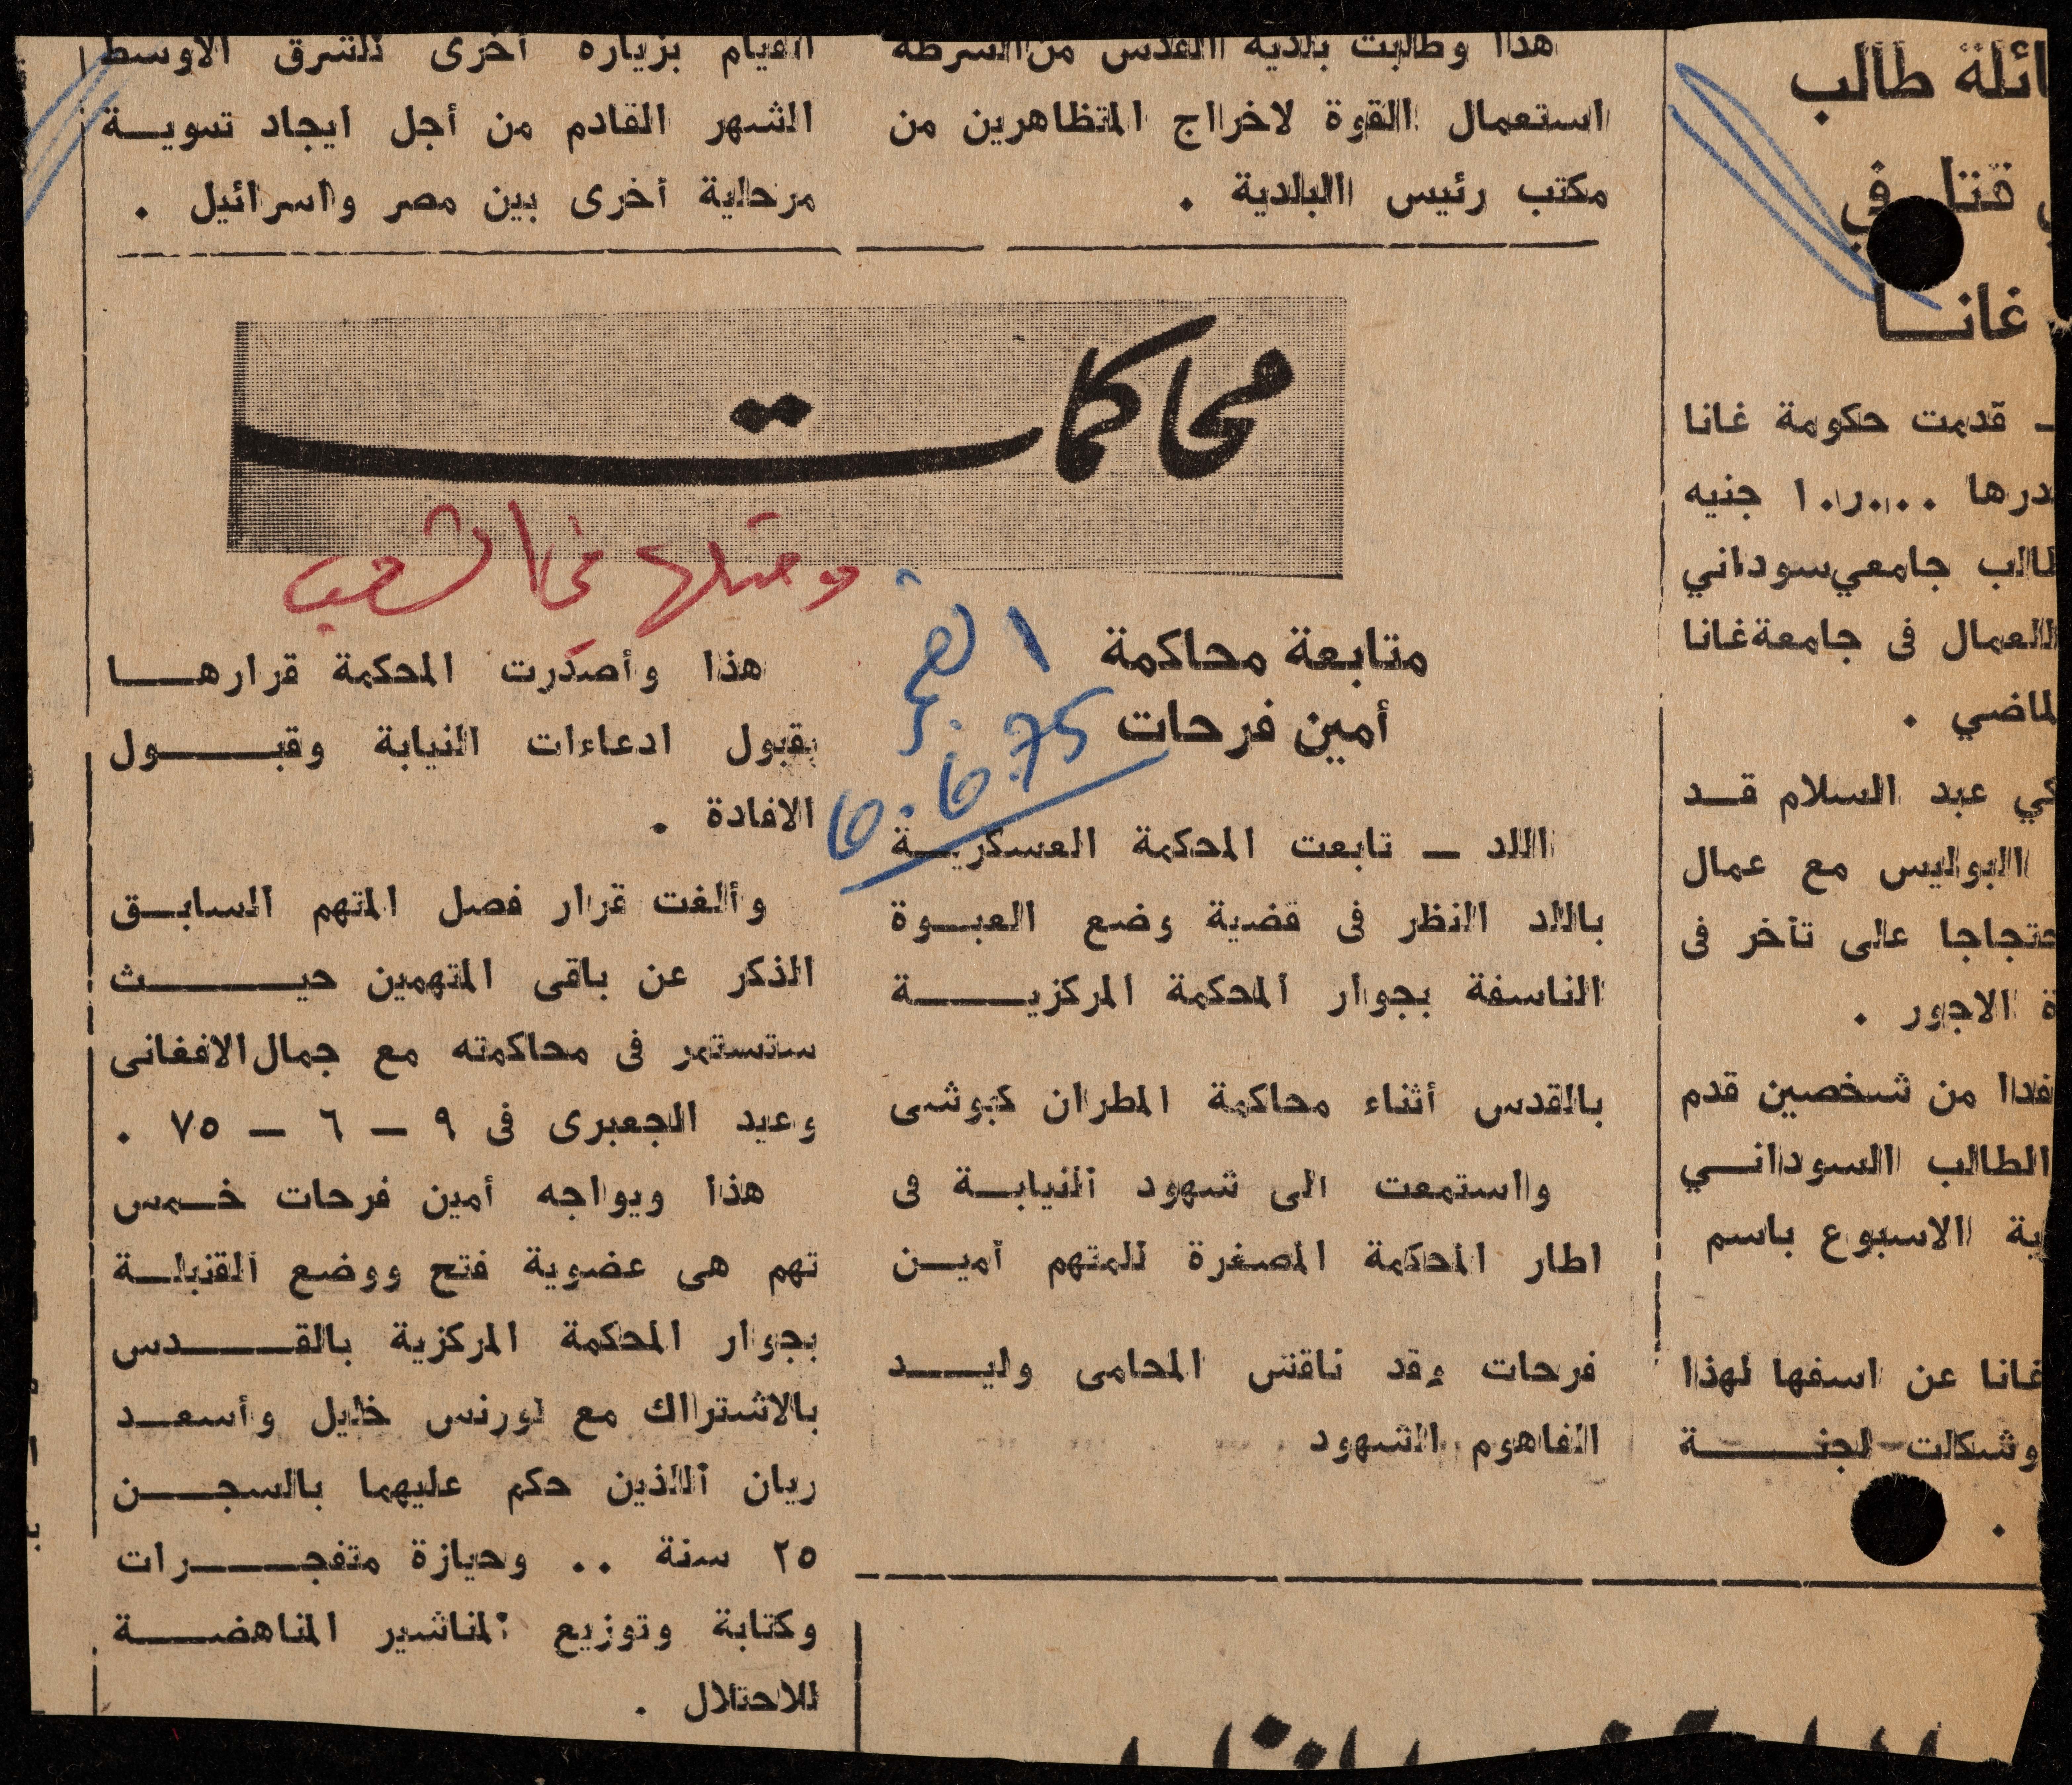 ائلة طالب
في
غانـــا
ـ قدمت حكومة غانا
درها ١٠٫٠٠٠ جنيه
طالب جامعي سوداني
للعمال فى جامعة غانا
لماضي .
كي عبد السلام قــد
البوليس مع عمال
حتجاجا على تأخر فى
ة الاجور .
فدا من شخصين قدم
الطالب السودانــي
ية الاسبوع باسم
غانا عن اسفها لهذا
وشكلت لجنــــة
.
هذا وطالبت بلدية القدس من الشرطة
استعمال القوة لاخراج المتظاهرين من
مكتب رئيس البلدية .
القيام بزيارة أخرى للشرق الاوسط
الشهر القادم من أجل ايجاد تسويــة
مرحلية أخرى بين مصر واسرائيل .
محاكمات
ومثلها في الشعب
الفجر
متابعة محاكمة
أمين فرحات
6.6.75
اللد ــ تابعت المحكمة العسكريــة
باللد النظر فى قضية وضع العبــوة
الناسفة بجوار المحكمة المركزيــــة
بالقدس أثناء محاكمة المطران كبوشى
واستمعت الى شهود النيابــة فى
اطار المحكمة المصغرة للمتهم أميــن
فرحات وقد ناقش المحامى وليـــد
الفاهوم الشهود
هذا وأصدرت المحكمة قرارهـــا
بقبول ادعاءات النيابة وقبــــول
الافادة .
وألغت قرار فصل المتهم السابــق
الذكر عن باقى المتهمين حيـــــث
ستستمر فى محاكمته مع جمال الافغانى
وعيد الجعبرى فى ٩ ــ ٦ ــ ٧٥ .
هذا ويواجه أمين فرحات خــمس
تهم هى عضوية فتح ووضع القنبلــة
بجوار المحكمة المركزية بالقــــدس
بالاشتراك مع لورنس خليل وأسعــد
ريان اللذين حكم عليهما بالسجـــن
٢٥ سنة .. وحيازة متفجــــرات
وكتابة وتوزيع المناشير المناهضــــة
للاحتلال .